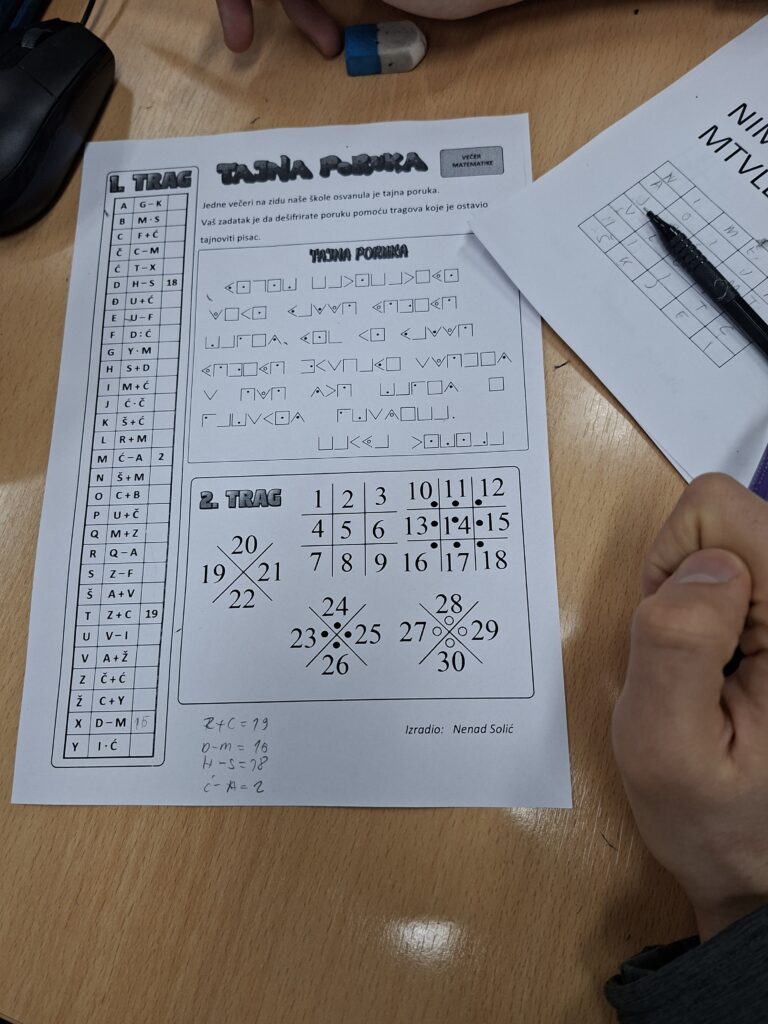 1. TRAG
TAJNA PORUKA
VEČER
MATEMATIKE
Jedne večeri na zidu naše škole osvanula je tajna poruka.
Vaš zadatak je da dešifrirate poruku pomoću tragova koje je ostavio
tajnoviti pisac.
A G – K
B M · S
C F + Ć
Č C – M
Ć T – X
D H – S 18
Đ U + Ć
E U – F
F D : Ć
G Y · M
H S + D
I M + Ć
J Ć · Č
K Š + Ć
L R + M
M Ć – A 2
N Š + M
O C + B
P U + Č
Q M + Z
R Q – A
S Z – F
Š A + V
T Z + C 19
U V – I
V A + Ž
Z Č + Ć
Ž C + Y
X D – M 16
Y I · Ć
TAJNA PORUKA
2. TRAG
1 2 3
4 5 6
7 8 9
10 11 12
13 14 15
16 17 18
20
19 21
22
24
23 25
26
28
27 29
30
Z+C = 19
D-M = 16
H-S = 18
Ć-A = 2
Izradio: Nenad Solić